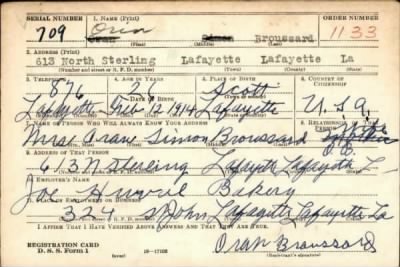 SERIAL NUMBER 1. NAME (Print) ORDER NUMBER
709 Oran Simon Broussard 1133
(First) (Middle) (Last)
2. ADDRESS (Print)
613 North Sterling Lafayette Lafayette La
(Number and street or R. F. D. number) (Town) (County) (State)
3. TELEPHONE 4. AGE IN YEARS 5. PLACE OF BIRTH 6. COUNTRY OF CITIZENSHIP
876 26 Scott
DATE OF BIRTH
Lafayette Feb 12, 1914 Lafayette U.S.A.
7. NAME OF PERSON WHO WILL ALWAYS KNOW YOUR ADDRESS 8. RELATIONSHIP OF THAT PERSON
Mrs. Oran Simon Broussard
9. ADDRESS OF THAT PERSON
613 N Sterling Lafayette Lafayette L
10. EMPLOYER'S NAME
Joe Bakery
11. PLACE OF EMPLOYMENT OR BUSINESS
324 St John Lafayette Lafayette La
I AFFIRM THAT I HAVE VERIFIED ABOVE ANSWERS AND THAT THEY ARE TRUE.
REGISTRATION CARD
D. S. S. Form 1 16-17105 Oran Broussard
(over) (Registrant's signature)